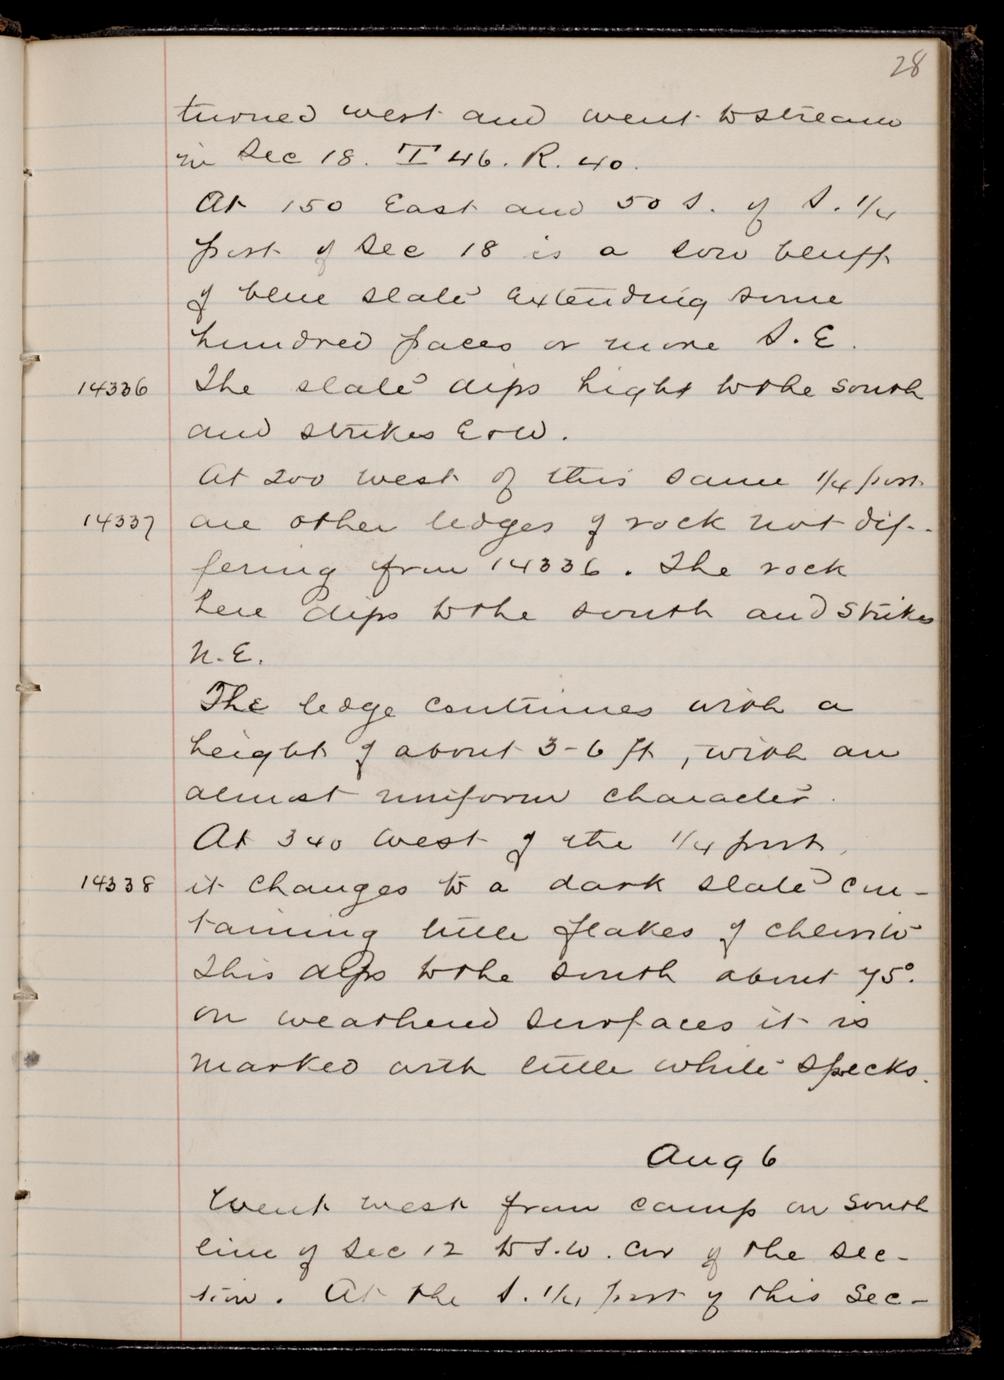 28
turned west and went to stream
in Sec 18. T 46. R. 40.
At 150 East and 50 S. of S. 1/4
post of Sec 18 is a low bluff
of blue slate extending some
hundred paces or more S.E.
14336 The slate dips hight to the south
and strikes E & W.
At 200 west of this same 1/4 post
14337 are other ledges of rock not dif-
fering from 14336. The rock
here dips to the south and strikes
N.E.
The ledge continues with a
height of about 3-6 ft, with an
almost uniform character.
At 340 west of the 1/4 post,
14338 it changes to a dark slate con-
taining little flakes of chlorite
This dips to the south about 75°.
on weathered surfaces it is
marked with little white specks.
Aug 6
Went west from camp on south
line of Sec 12 to S.W. Cor of the sec-
tion. At the S. 1/4 post of this Sec-